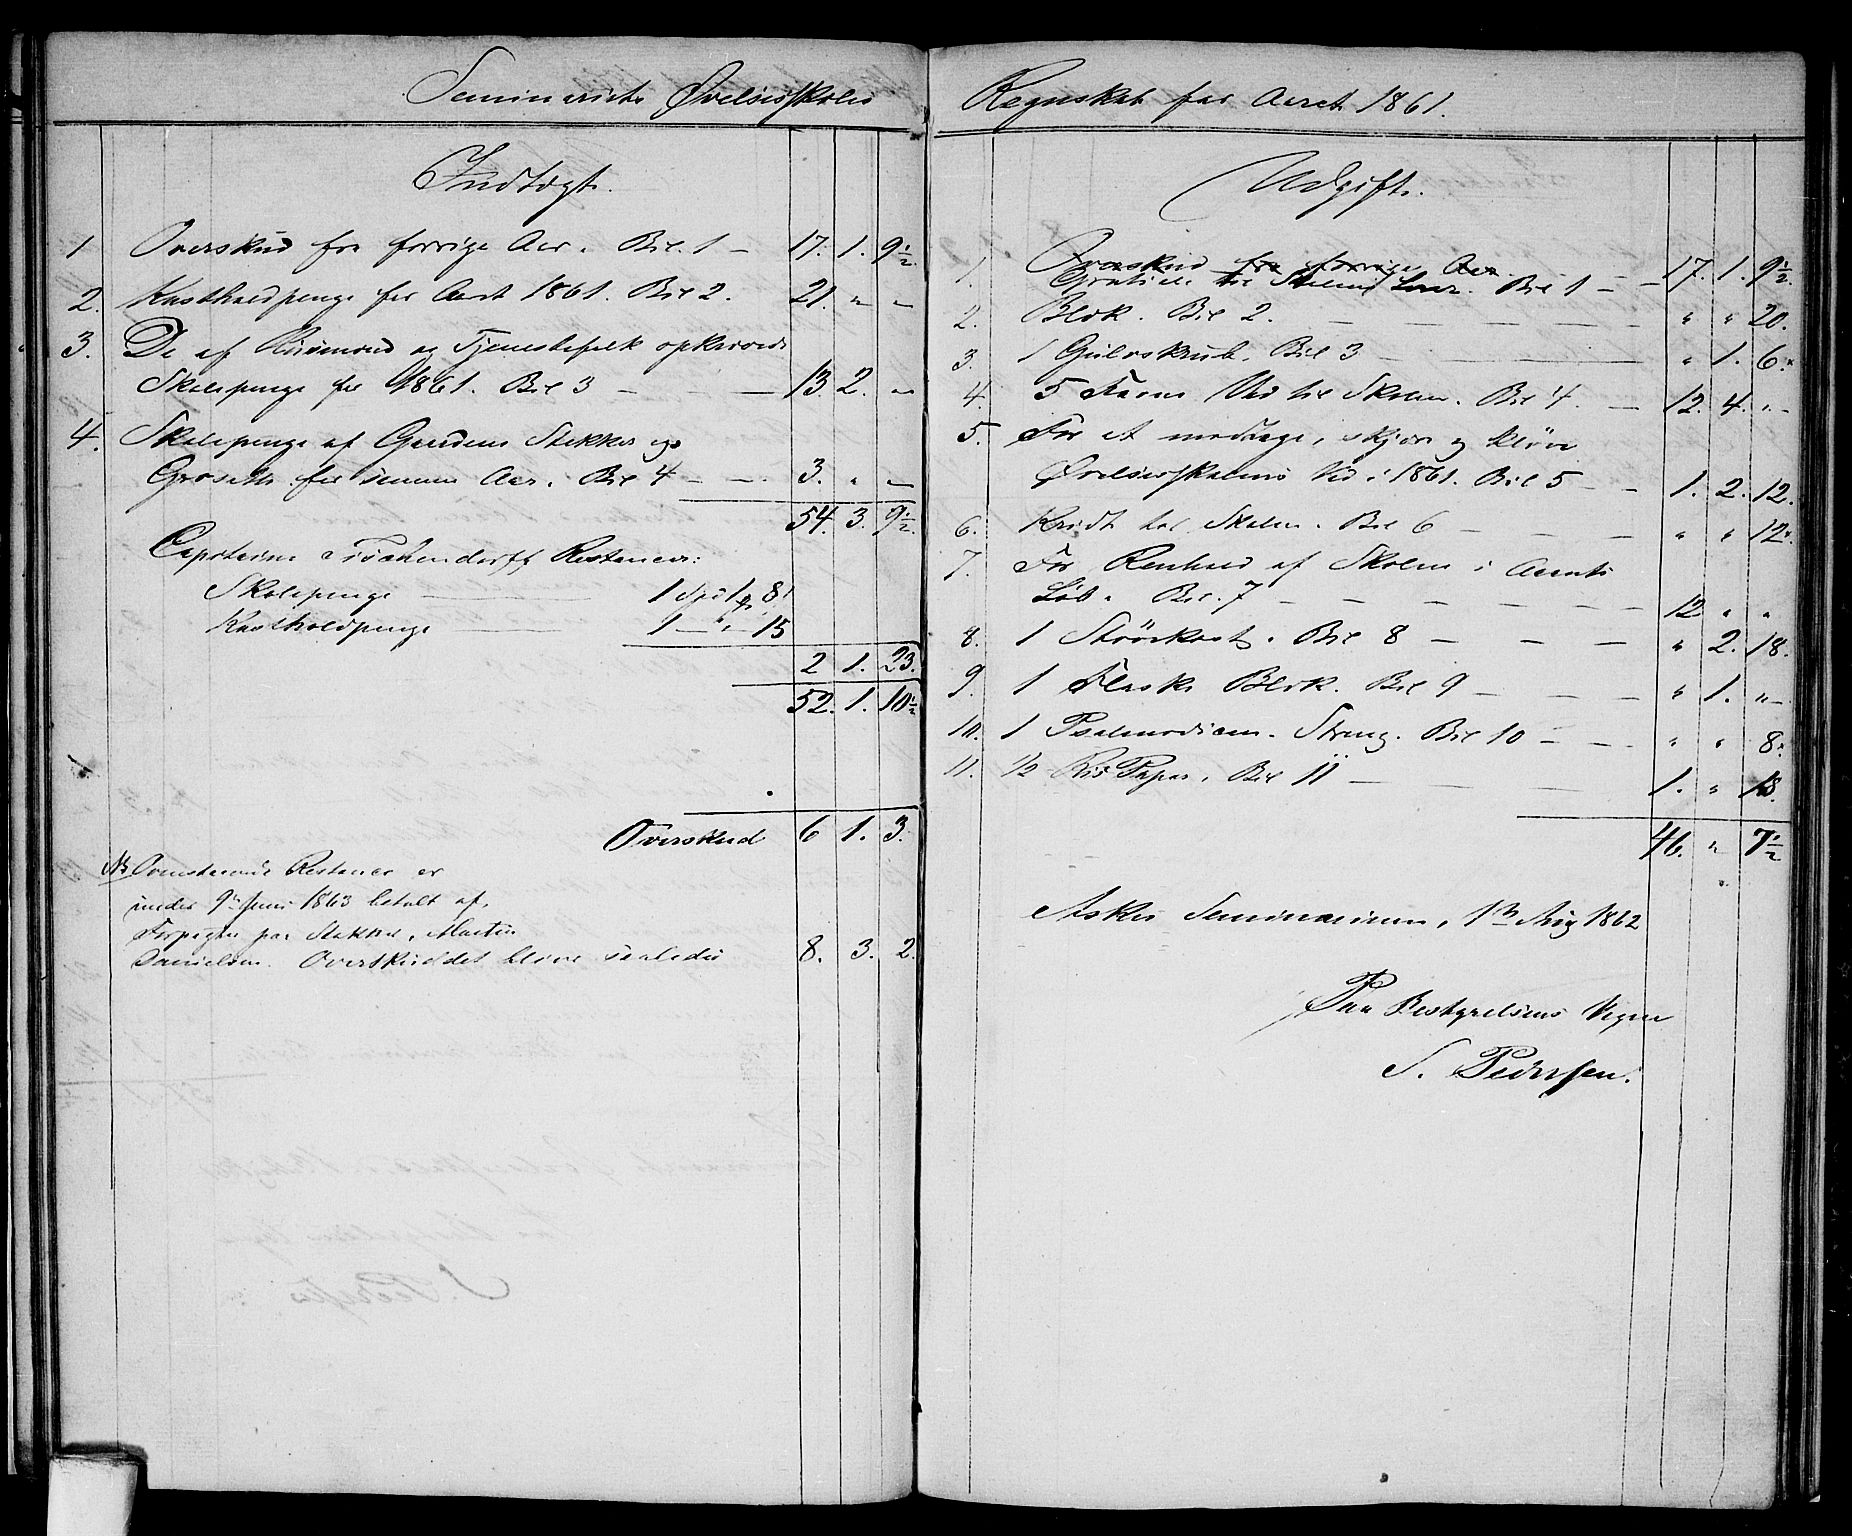 Seminariets Øvelsesskoles
Indtægt.
1 Overskud fra forrige Aar. Bil. 1 — 17. 1. 9½.
2. Kostholdpenge for Aaret 1861. Bil 2. 21. " "
3. De af Huusmænd og Tjenestefolk opkrævede
Skolepenge for 1861. Bil 3 — — 13. 2. "
4. Skolepenge af Gaardene Stokker og
Grosett for samme Aar. Bil 4 — — 3. " "
54. 3. 9½.
Capitaine Restancer:
Skolepenge — 1 Spd 1 8
Kostholdpenge — 1 — " 15
2 1. 23.
52. 1. 10½
Overskud 6 1. 3.
NB Ovenstaaende Restance er
under 9de Juni 1863 betalt af
Forpagter paa Stokker, Martin
Danielsen. Overskuddet bliver saaledes 8. 3. 2.
Regnskab for Aaret 1861.
Udgift.
Overskud fra forrige Aar.
1. Gratiale til Skolens Lærer. Bil 1 — 17. 1. 9½.
2. Blæk. Bil 2. — " " 20.
3. 1 Gulvskrub. Bil 3 — " 1. 6.
4. 5 Favne Ved til Skolen. Bil 4. — 12. 4. "
5. For at modtage, skjære og kløve
Øvelsesskolens Ved i 1861. Bil 5 — 1. 2. 12.
6. Kridt til Skolen. Bil 6 — " " 12.
7. For Renhold af Skolen i Aarets
Løb. Bil. 7 — 12 " "
8. 1 Bil 8 — " 2. 18.
9. 1 Flaske Blæk. Bil 9 — " 1. "
10. 1 Psalmodicon-Streng. Bil 10 — " " 8.
11. ½ Riis Papir. Bil 11 — 1. " 18.
46. " 7½
Asker Seminarium, 1ste Aug 1862
Paa Bestyrelsens Vegne
S. Pedersen.